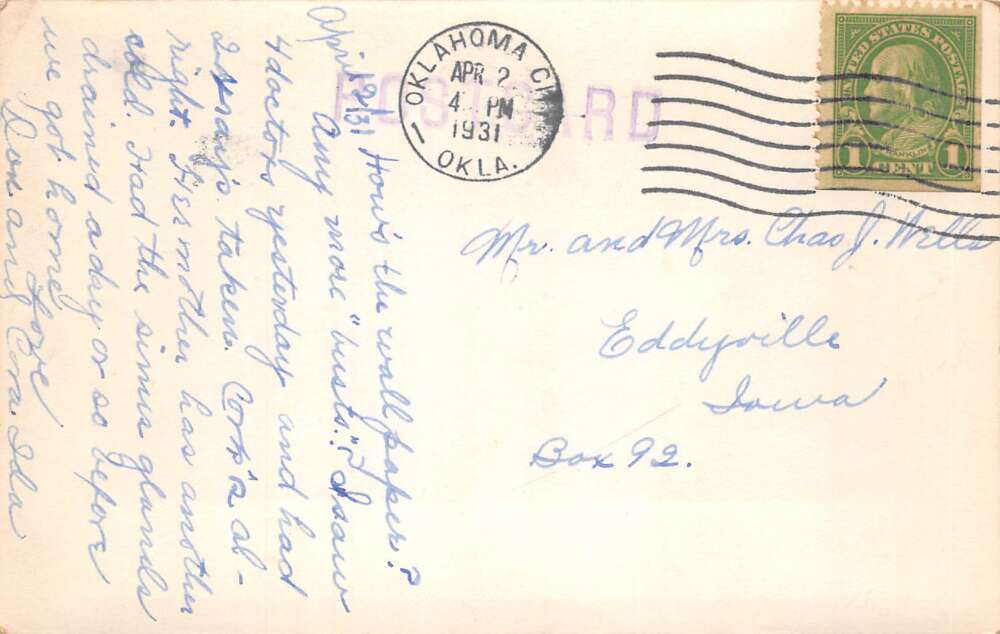 April 1931 How's the wall paper?
Any more "busts."? I saw
4 doctors yesterday and had
2 Xrays taken. Cora's al-
right. Her mother has another
cold. Had the sinus glands
drained a day or so before
we got home.
Love
Don and Cora Ida
POST CARD
OKLAHOMA CITY
APR 2
4 PM
1931
OKLA.
UNITED STATES POSTAGE
FRANKLIN
1 CENT 1
Mr. and Mrs. Chas J. Wells
Eddyville
Iowa
Box 92.